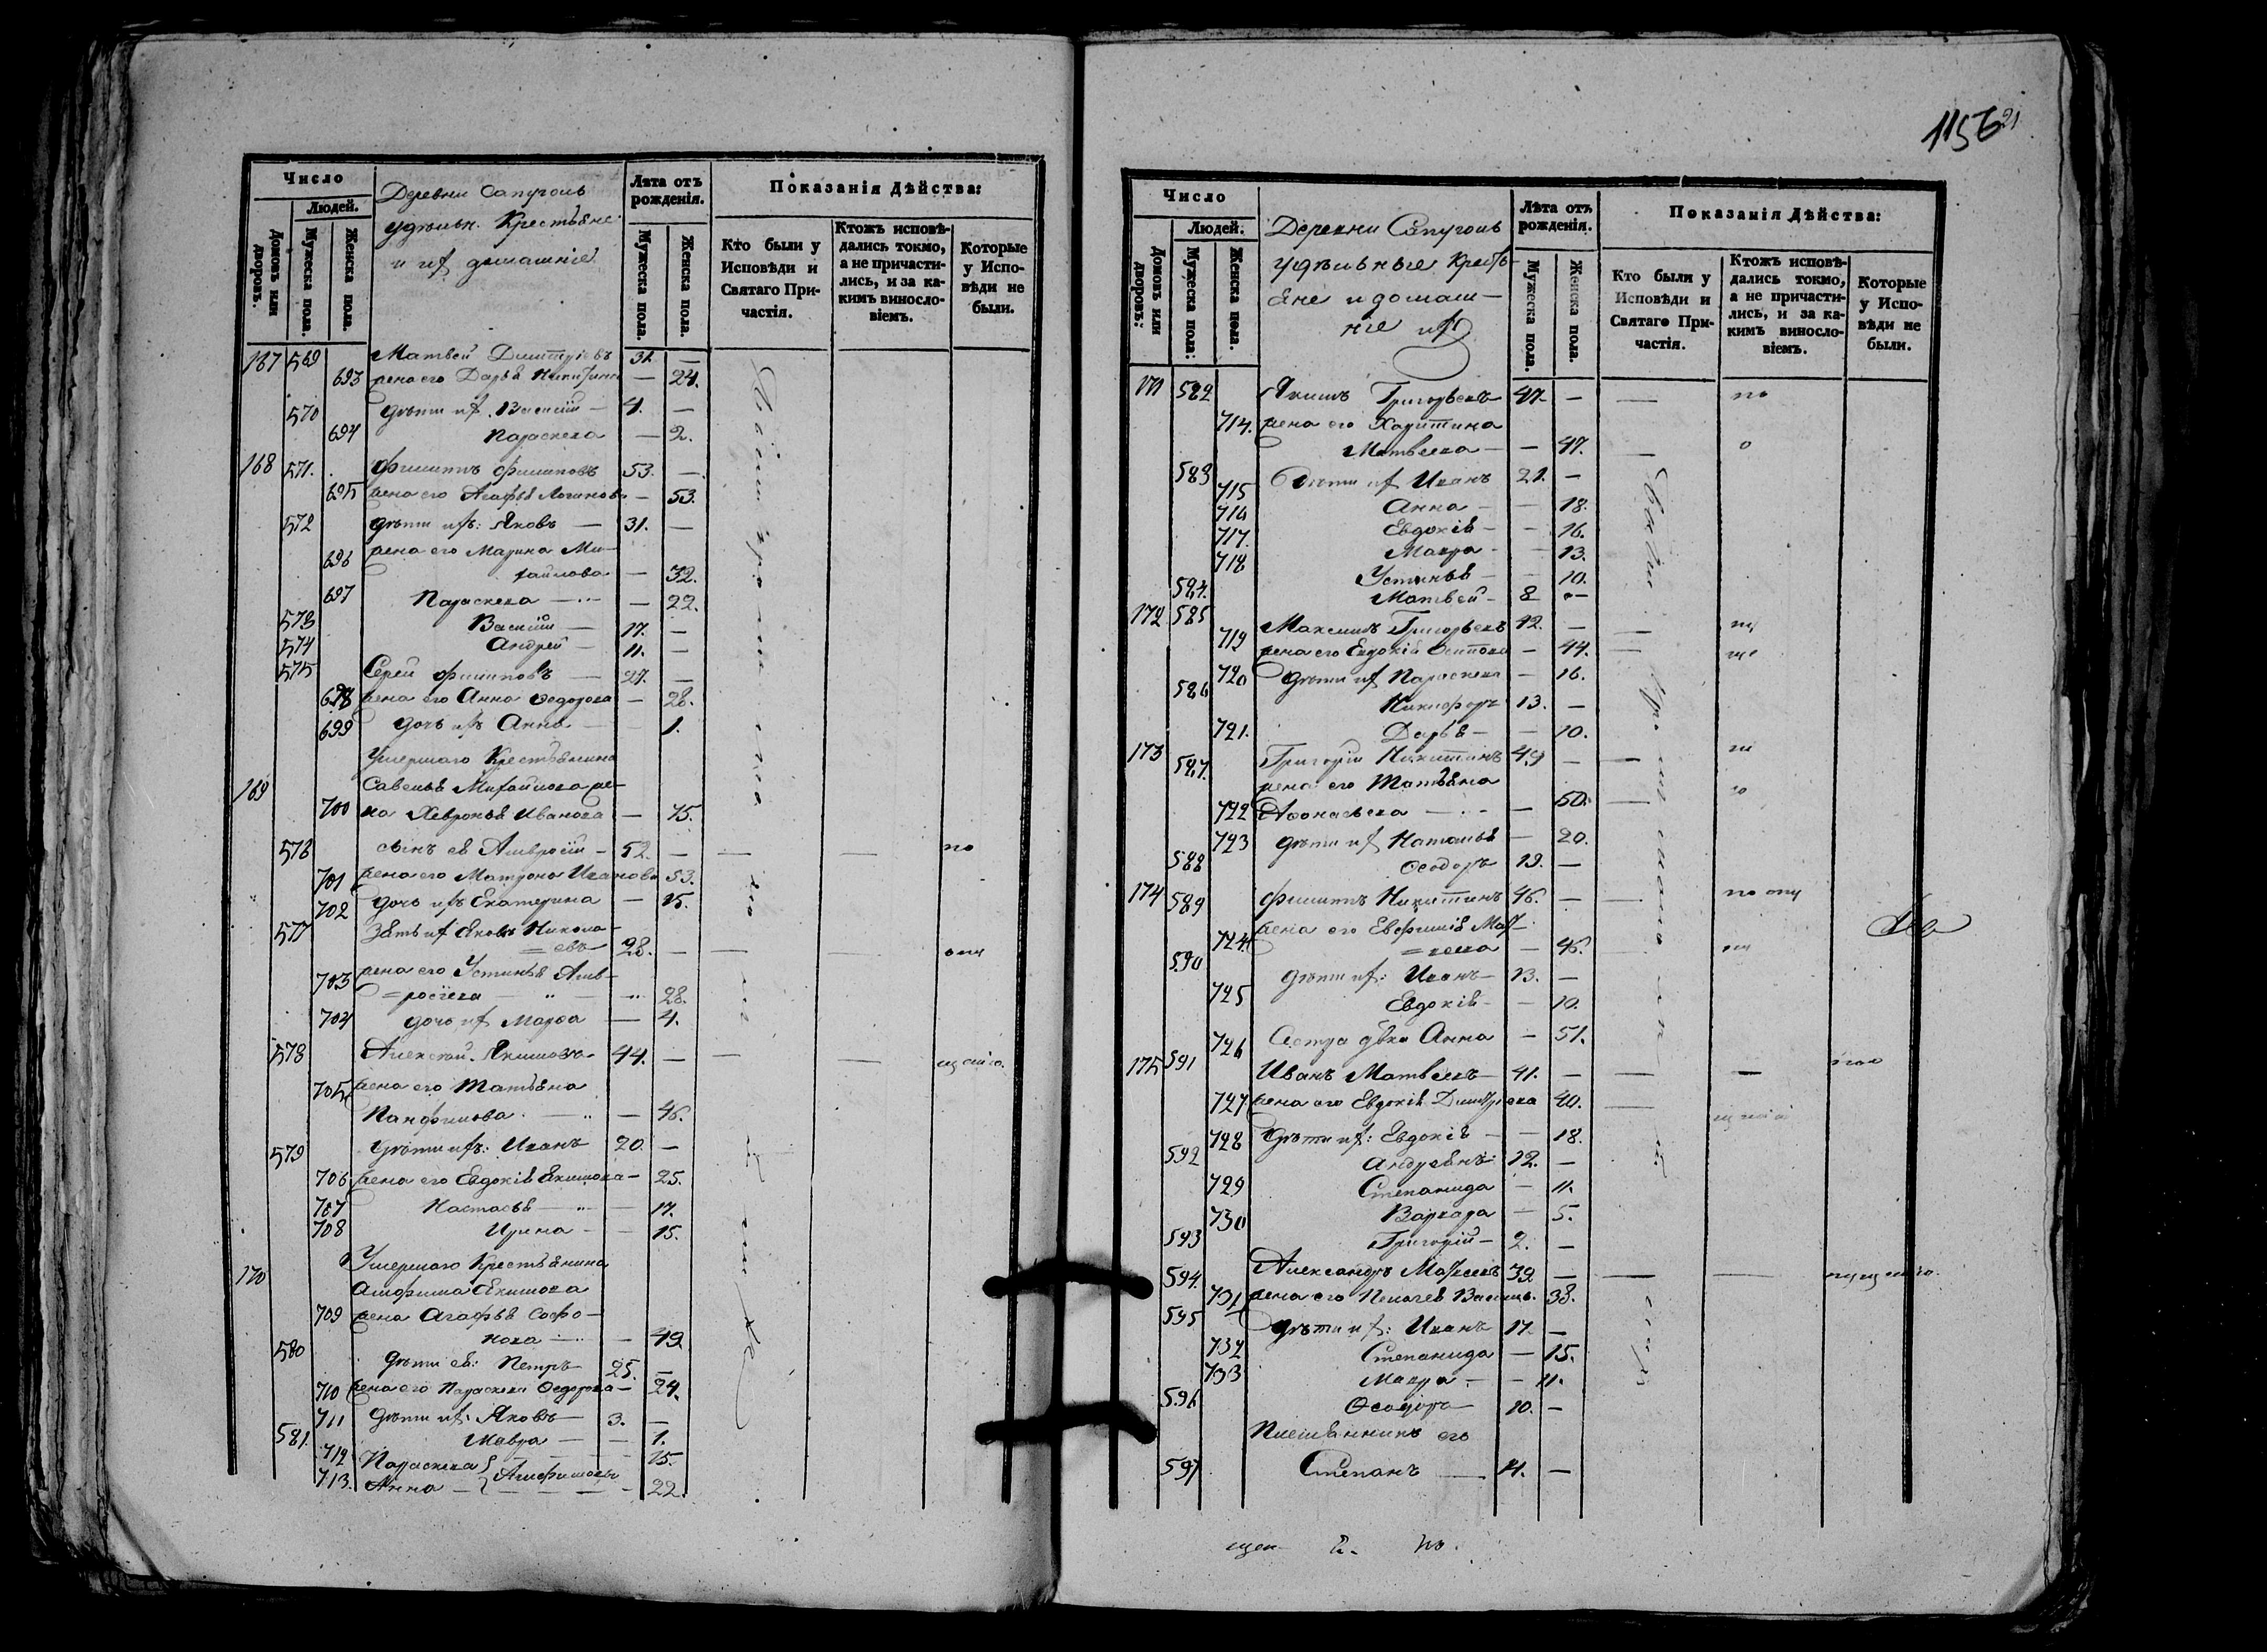 1156 21
Число
Людей.
Домовъ или дворовъ.
Мужеска пола.
Женска пола.
Деревни Сапуголь
удѣльн. Крестьяне
и их домашніе
Лѣта отъ рожденія.
Мужеска пола.
Женска пола.
Показанія Дѣйства:
Кто были у Исповѣди и Святаго Причастія.
Ктожъ исповѣдались токмо, а не причастились, и за какимъ винословіемъ.
Которые у Исповѣди не были.
167 569 Матвей Димитріевъ 31. —
693 жена его Дарья Никитина — 24.
570 дѣти их Василій — 4. —
694 Параскева — 2.
168 571. Филиппъ Филиповъ 53. —
695 жена его Агафья Логинова — 53.
572 дѣти ихъ: Яковъ — 31. —
696 жена его Марина Ми-
хайлова — 32.
697 Параскева — 22.
573 Василій — 17. —
574 Андрей — 11. —
575 Сергй Филиповъ — 27. —
698 жена его Анна Ѳедорова — 28.
699 дочь ихъ Анна — 1.
Умершаго Крестьянина
169 Савелья Михайлова же-
700 на Хевронья Иванова — 75.
576 сынъ ея Амвросій — 52. —
701 жена его Матрона Иванова 53.
702 дочь ихъ Екатерина — 15.
577 Зять их Яковъ Никола-
=евъ 28. —
703 жена его Устинья Амв-
=росіева — 28.
704 дочь их Марѳа — 4.
578 Алексѣй Якимовъ 44. —
705 жена его Татьяна
Панфилова — 46.
579 дѣти ихъ: Иванъ 20. —
706 жена его Евдокія Якимова — 25.
707 Настасья — 17.
708 Ирина — 15.
Умершаго Крестьянина
170 Амфима Якимова
709 жена Агафья Софо-
нова — 49.
580 дѣти ея: Петръ 25. —
710 жена его Параскева Ѳедорова — 24.
711 дѣти их: Яковъ 3. —
581. Мавра — 1.
712 Параскева 15.
713. Анна — Амфимовы — 22.
Число
Людей.
Домовъ или дворовъ:
Мужеска пола:
Женска пола.
Деревни Сапуголь
удѣльные кресть-
яне и домаш-
ніе их
Лѣта отъ рожденія.
Мужеска пола.
Женска пола.
Показанія Дѣйства:
Кто были у Исповѣди и Святаго Причастія.
Ктожъ исповѣдались токмо, а не причастились, и за какимъ винословіемъ.
Которые у Исповѣди не были.
171 582 Якимъ Григорьевъ 47. —
714. жена его Харитина
Матвѣева — 47.
583 Дѣти их Иванъ 21. —
715 Анна — 18.
716 Евдокія — 16.
717. Мавра — 13.
718 Устинья — 10.
584. Матвей — 8 —
172 585 Максимъ Григорьевъ 42. —
719 жена его Евдокія Осипова — 44.
720 дѣти их Параскева — 16.
586 Никифоръ 13. —
721. Дарья — 10.
173 587. Григорій Никитинъ 49 —
жена его Татьяна
722 Аѳонасьева — 50.
723 дѣти их Наталья — 20.
588 Ѳеодоръ 19. —
174 589 Филиппъ Никитинъ 46. —
724. жена его Евфимія Мат-
=веева — 46.
590 дѣти их: Иванъ 13. —
725 Евдокія — 10.
726 Сестра дѣвка Анна — 51.
175 591 Иванъ Матвѣевъ 41. —
727 жена его Евдокія Димитріева 40.
728 Дѣти их: Евдокія — 18.
592 Андреянъ 12. —
729 Степанида — 11.
730 Варвара — 5.
593 Григорій — 2. —
594. Александръ Матвеевъ 39 —
731 жена его Пелагея Василь. 38.
595 дѣти их: Иванъ 17. —
732 Степанида — 15.
733 Мавра — 11.
596 Ѳеодоръ 10. —
Племянникъ его
597 Степанъ — 14. —